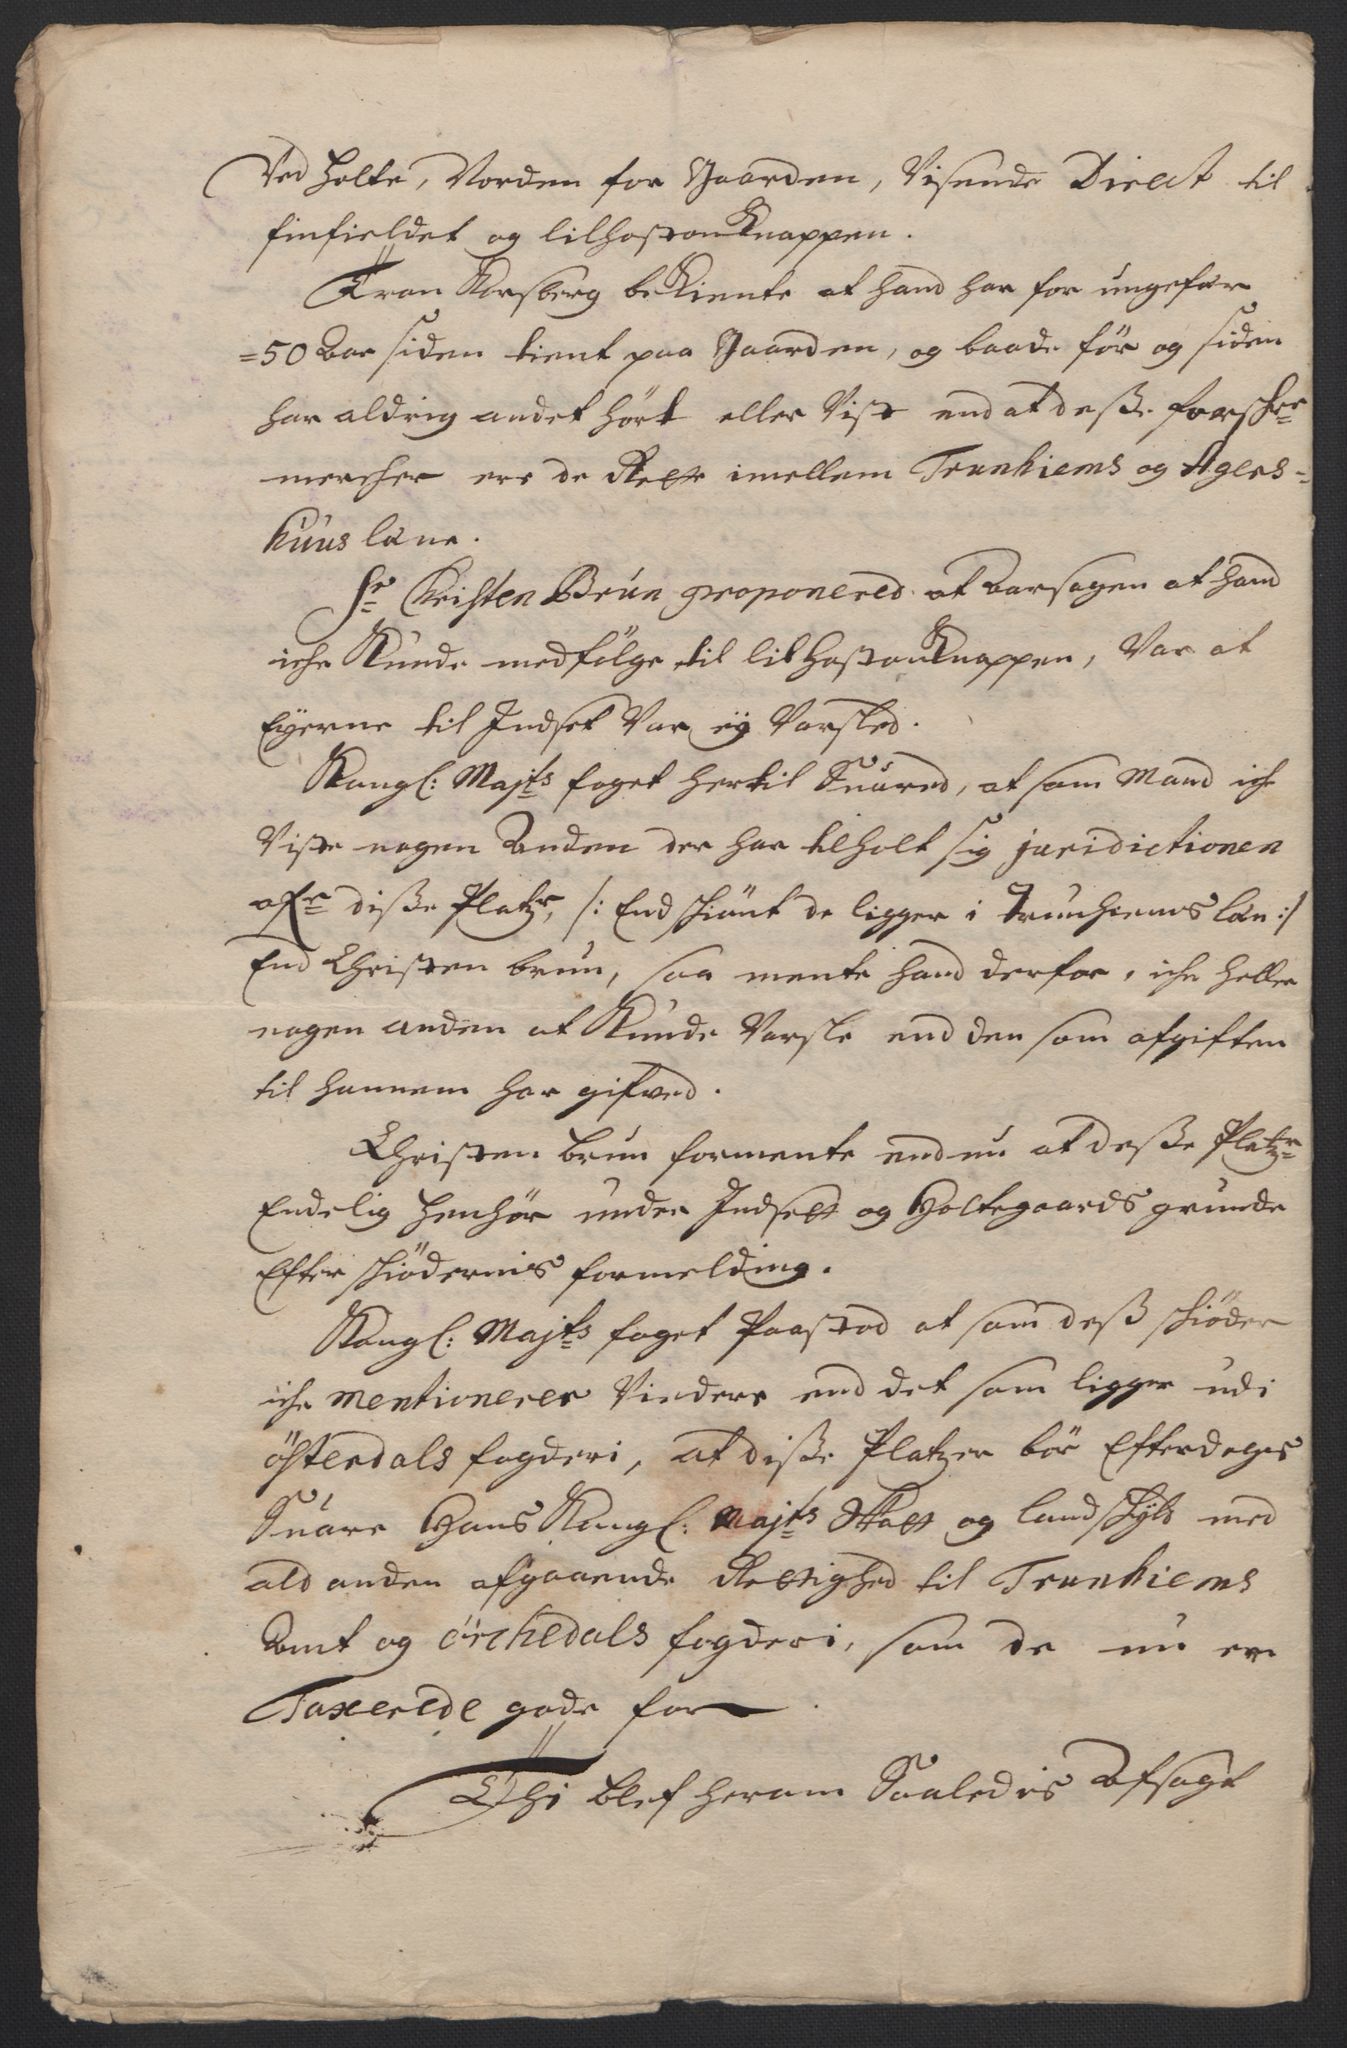 Ved Holte, Norden for Gaarden, Visende Direct til
finfieldet og lilhoston Knappen.
Tron Korsberg bekiente at hand har for ungefær
=50 Aar siden tient paa Gaarden, og baade før og siden
har aldrig andet hört eller Vist end at desse forschr:
mercher ere de Rette imellem Trunhiems og Agers=
huus læne.
Sr Christen Brun proponered at Aarsagen at hand
iche Kunde medfölge til lilhoston Knappen, Var at
Eyerne til Indset Var eÿ Varsled.
Kongl: Majts foget hertil Suared, at som Mand iche
Viste nogen Anden der har tilholt sig juridictionen
ofr disse Platzr, /: End schiönt de ligger i Trunhiems læn :/
End Christen Brun, saa mente hand derfor, iche heller
nogen anden at Kunde Varsle end den som afgiften
til hannem har gifved.
Christen Brun formente endnu at desse Platzr
Endelig henhör under Indsett og Holtegaards grunde
Efter schiödernis formelding.
Kongl: Majts foget Paastod at som dess schiöder
iche Mentionerer Videre end det som ligger udi
österdals fogderi, at disse Platzer bör Efterdags
Suare Hans Kongl: Majts Skatt og landschyld med
ald anden afgaaende Rettighed til Trunhiems
Amt og örchedals fogderi, som de nu er
Taxerede gode for
Thi blef herom Saaledis Afsagt